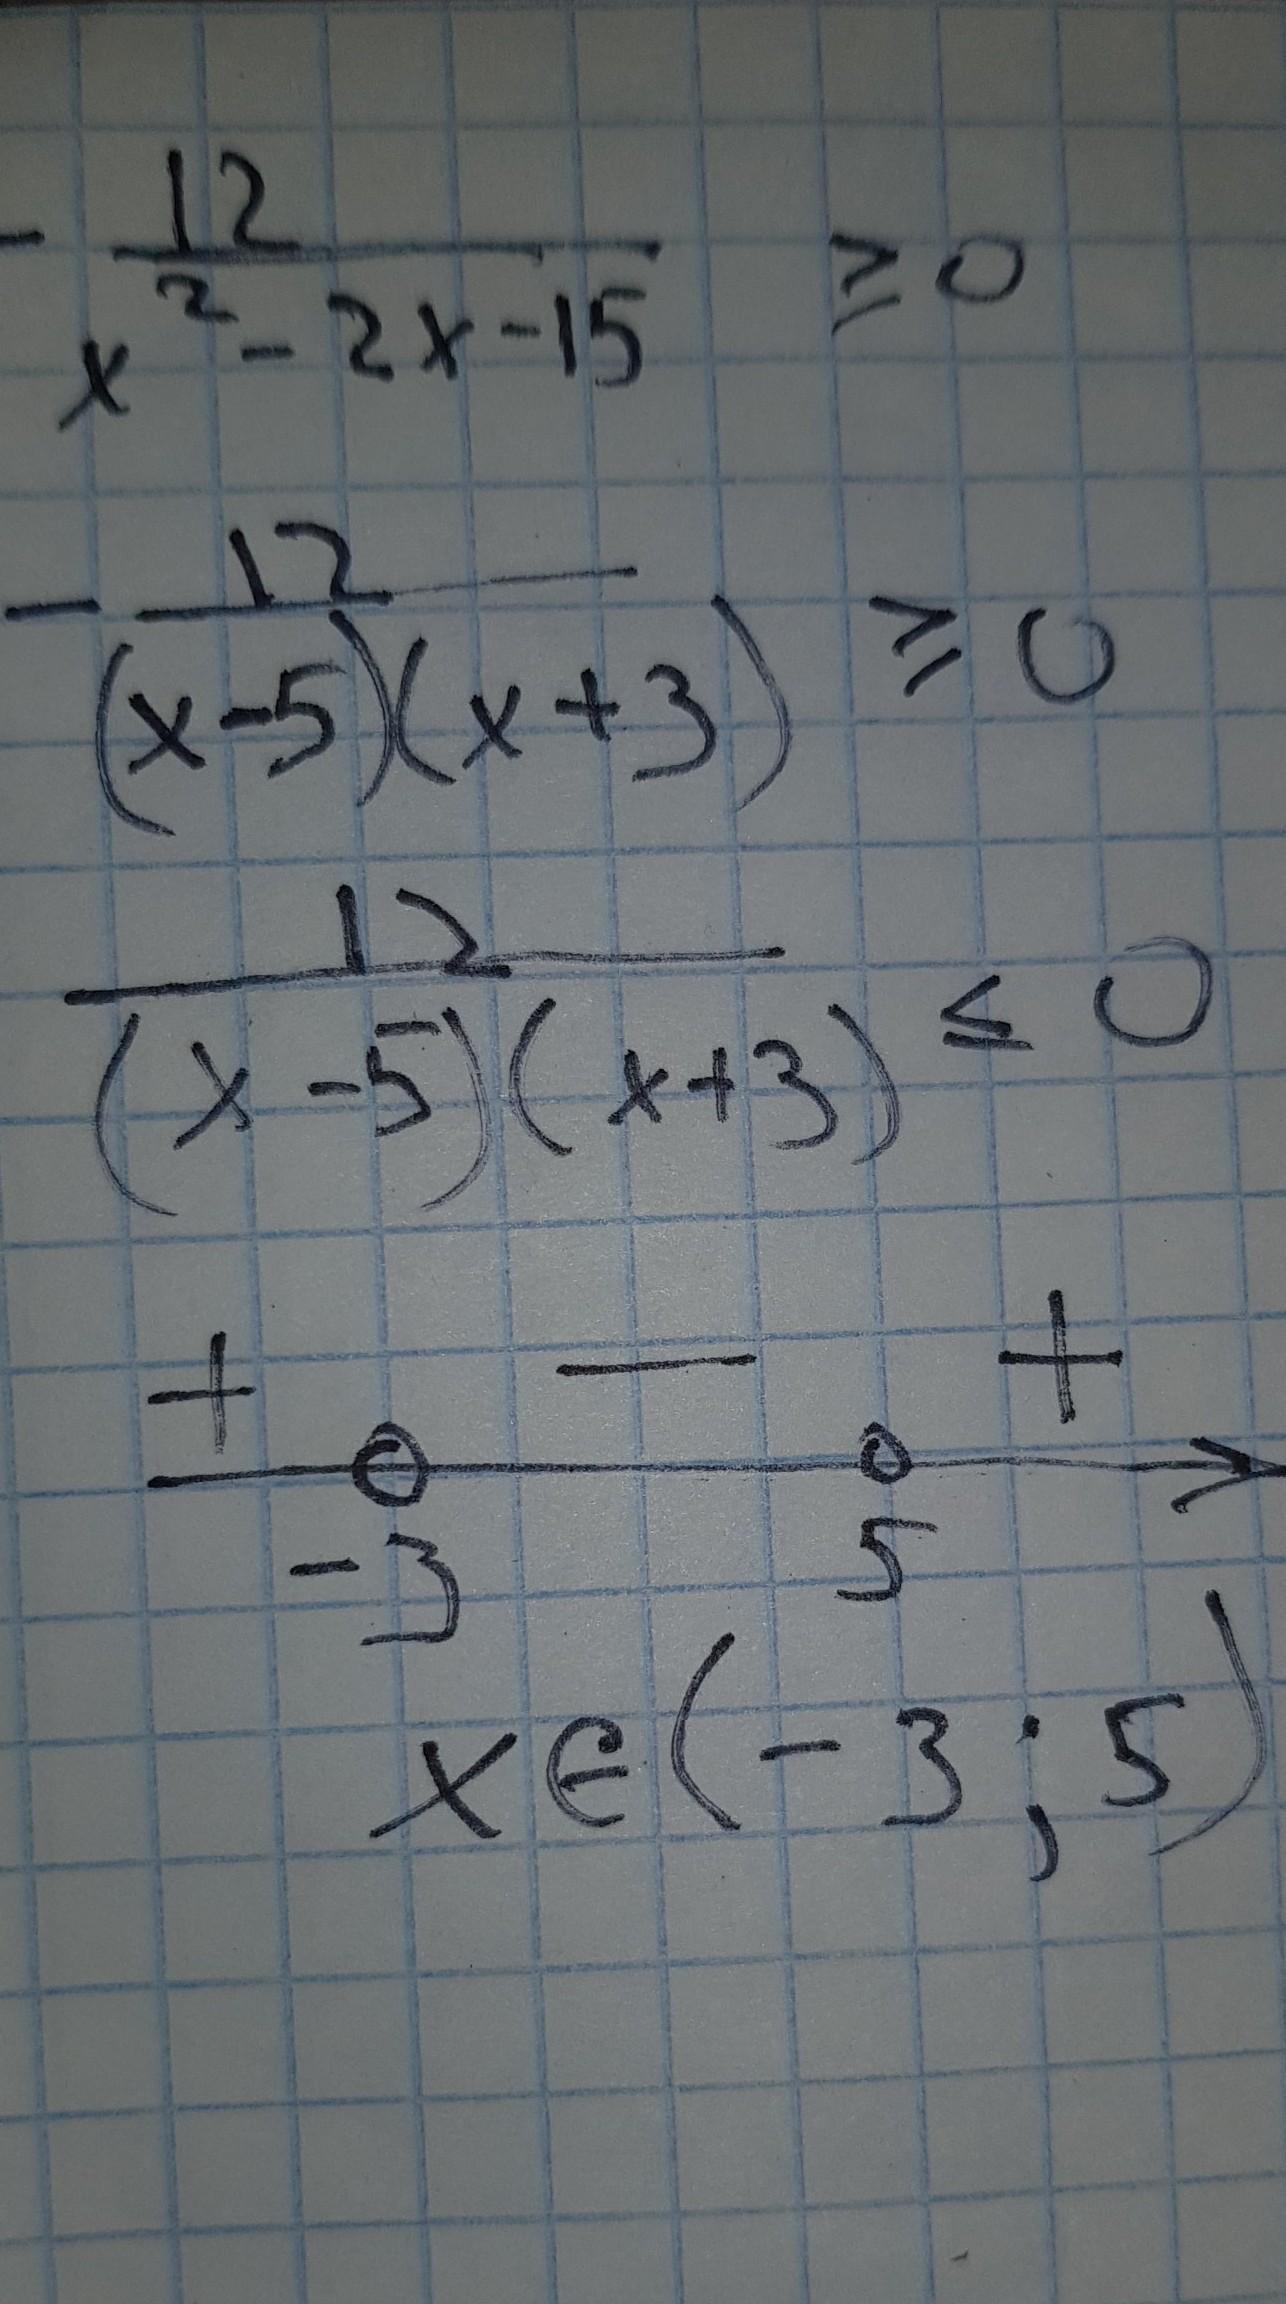 - 12/(x² - 2x - 15) ≥ 0
- 12/((x-5)(x+3)) ≥ 0
12/((x-5)(x+3)) ≤ 0
+ — +
-3 5
x∈(-3;5)